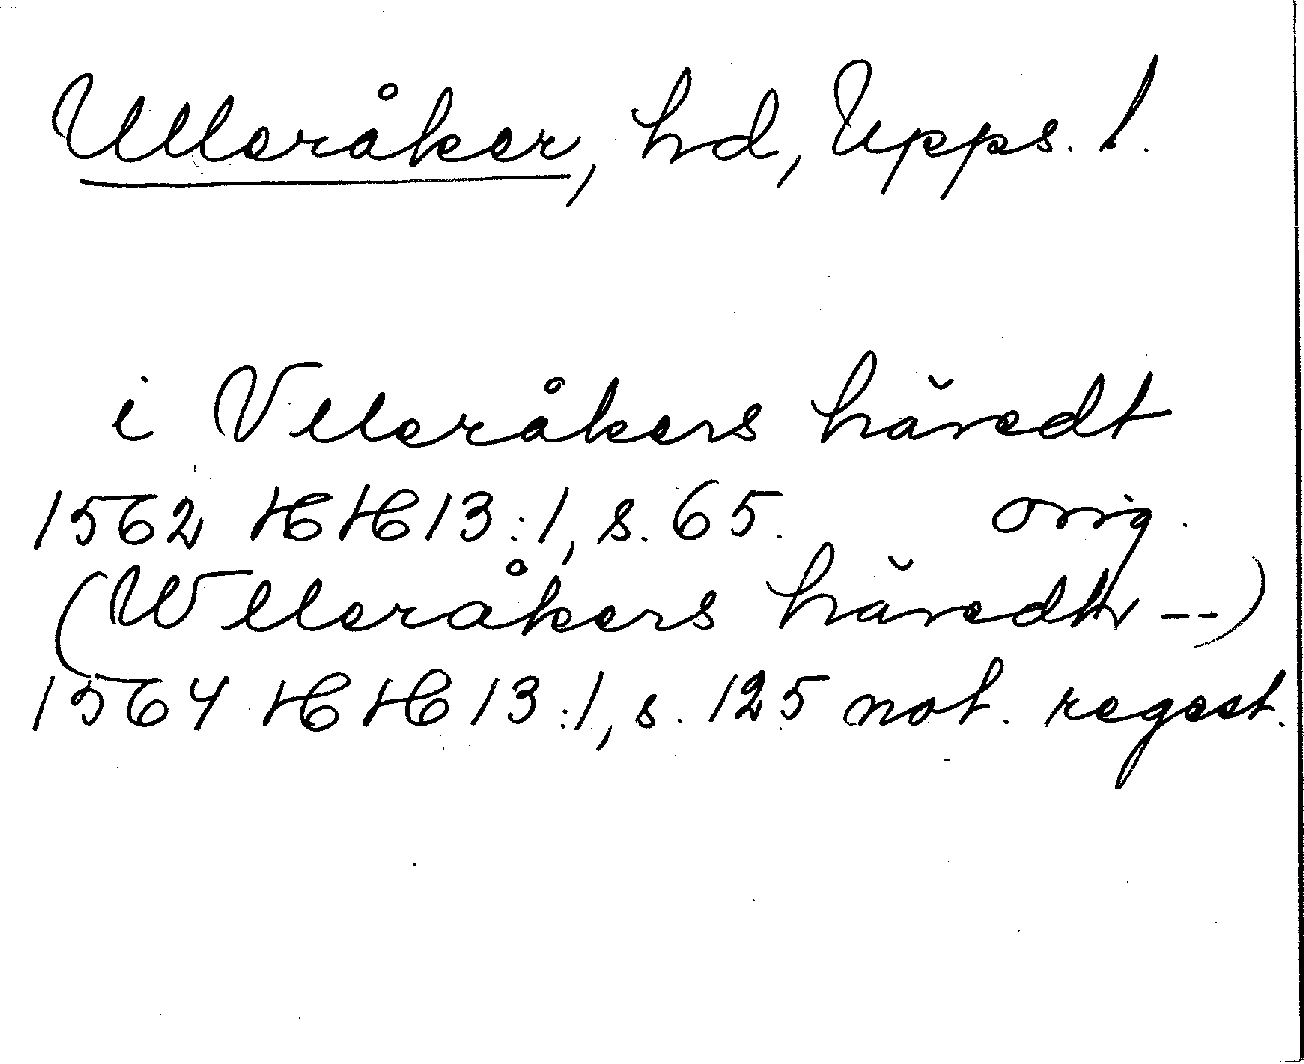 Ulleråker, hd, Upps. l.
i Vlleråkers häredt
1562 HH 13:1, s. 65. orig.
(Wlleråkers häredh --)
1564 HH 13:1, s. 125 not. regest.